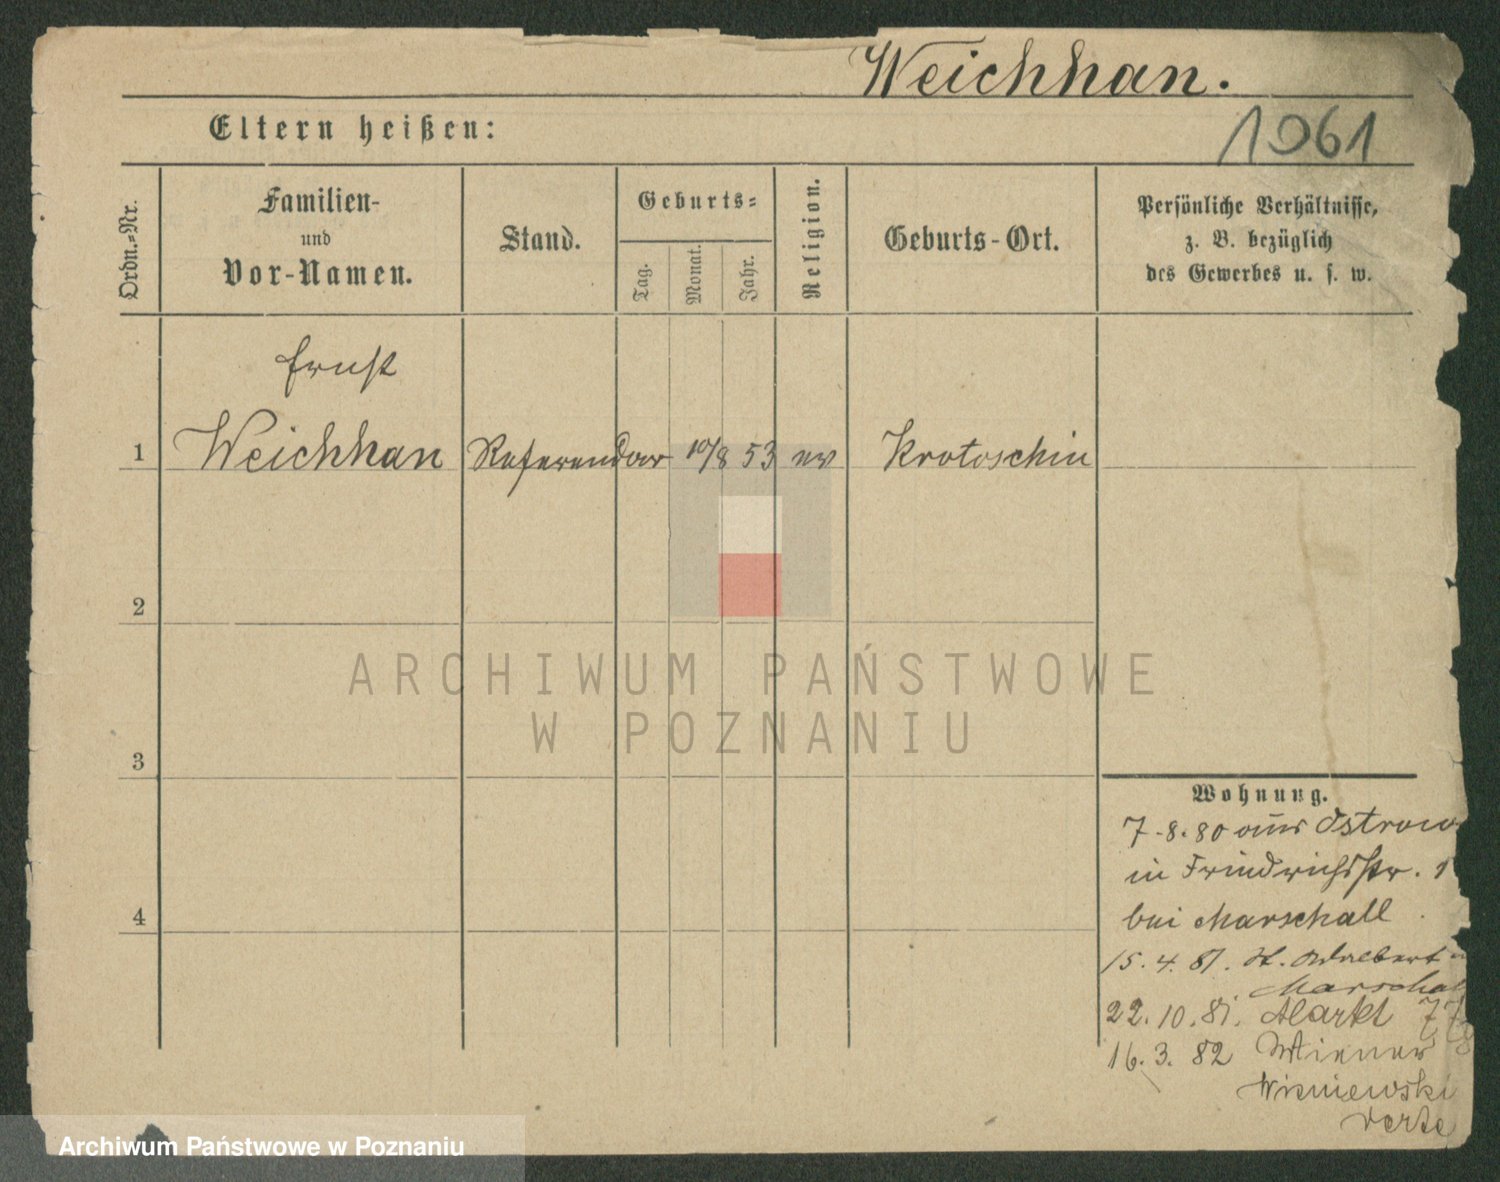 Weichhan.
1961
Eltern heißen:
Ordn.-Nr.
Familien-
und
Vor-Namen.
Stand.
Geburts-
Tag.
Monat.
Jahr.
Religion.
Geburts-Ort.
Persönliche Verhältnisse,
z. B. bezüglich
des Gewerbes u. s. w.
Ernst
1 Weichhan Referendar 10/8 53 ev Krotoschin
2
ARCHIWUM PAŃSTWOWE
W POZNANIU
3
4
Wohnung.
7.8.80 aus Ostrowo
in Friedrichsstr.
bei Marschall
15.4.81. St. Adalbert
Marschall
22.10.81. Markt 77
16.3.82 Wiener
Wisniewski
verte
Archiwum Państwowe w Poznaniu